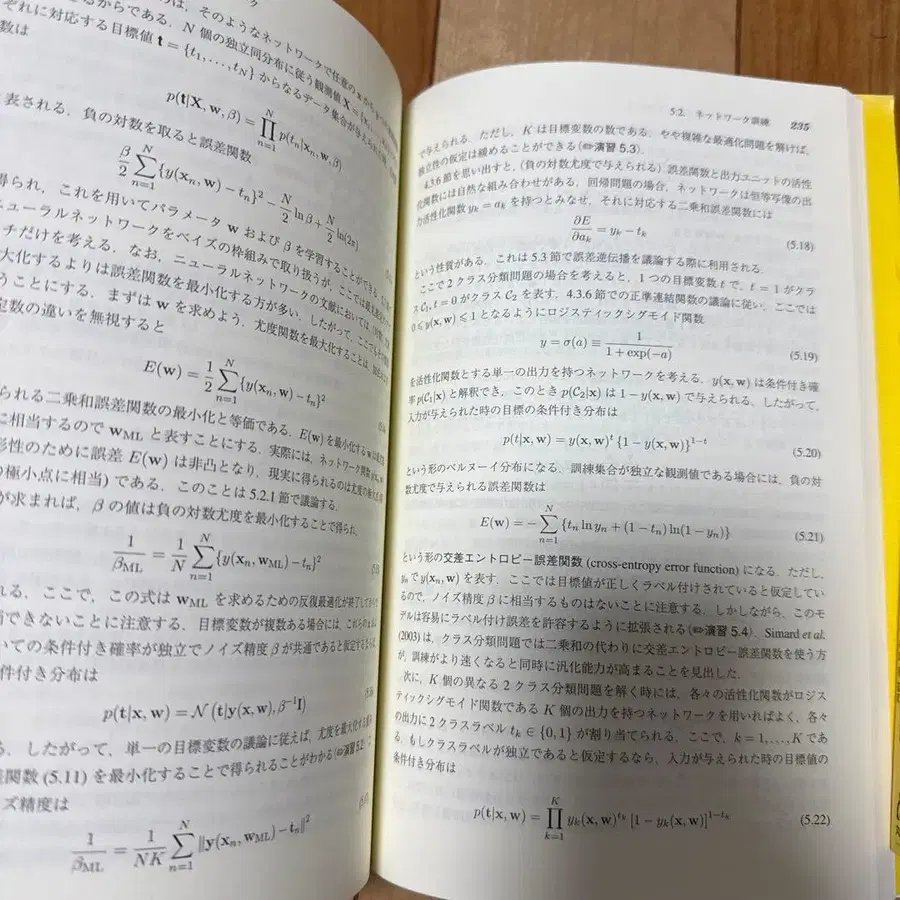 のは，そのようなネットワークで任意の
るからである．N 個の独立同分布に従う観測値 X = {x₁,
ぞれに対応する目標値 t = {t₁,...,t_N} からなるデータ集合が与えられた
数は
p(t|X, w, β) = ∏_{n=1}^{N} p(t_n|x_n, w, β)
表される．負の対数を取ると誤差関数
β/2 ∑_{n=1}^{N} {y(x_n, w) − t_n}² − N/2 ln β + N/2 ln(2π)
得られ，これを用いてパラメータ w および β を学習することができる．
ニューラルネットワークをベイズの枠組みで取り扱うが，ここでは
チだけを考える．なお，ニューラルネットワークの文献においては，
大化するよりは誤差関数を最小化する方が多い．したがって，ここでも
うことにする．まずは w を求めよう．尤度関数を最大化することは，
定数の違いを無視すると
E(w) = 1/2 ∑_{n=1}^{N} {y(x_n, w) − t_n}²
られる二乗和誤差関数の最小化と等価である．E(w) を最小化する w は
に相当するので w_ML と表すことにする．実際には，ネットワーク関数
形性のために誤差 E(w) は非凸となり，現実に得られるのは尤度の
の極小点に相当) である．このことは 5.2.1 節で議論する．
が求まれば，β の値は負の対数尤度を最小化することで得られ，
1/β_ML = 1/N ∑_{n=1}^{N} {y(x_n, w_ML) − t_n}²
れる．ここで，この式は w_ML を求めるための反復最適化が終了して
できないことに注意する．目標変数が複数ある場合には，これらの
いての条件付き確率が独立でノイズ精度 β が共通であると仮定すると，
件付き分布は
p(t|x, w) = N (t|y(x, w), β⁻¹I)
る．したがって，単一の目標変数の議論に従えば，尤度を最大化する
差関数 (5.11) を最小化することで得られることがわかる (✏演習 5.2)．
イズ精度は
1/β_ML = 1/NK ∑_{n=1}^{N} ‖y(x_n, w_ML) − t_n‖²
5.2. ネットワーク訓練 235
で与えられる．ただし，K は目標変数の数である．やや複雑な最適化問題を解けば，
独立性の仮定は緩めることができる (✏演習 5.3)．
4.3.6 節を思い出すと，(負の対数尤度で与えられる) 誤差関数と出力ユニットの活性
化関数には自然な組み合わせがある．回帰問題の場合，ネットワークは恒等写像の出
力活性化関数 y_k = a_k を持つとみなせ，それに対応する二乗和誤差関数には
∂E/∂a_k = y_k − t_k (5.18)
という性質がある．これは 5.3 節で誤差逆伝播を議論する際に利用される．
ここで 2 クラス分類問題の場合を考えると，1 つの目標変数 t で，t = 1 がクラ
ス C₁, t = 0 がクラス C₂ を表す．4.3.6 節での正準連結関数の議論に従い，ここでは
0 ⩽ y(x, w) ⩽ 1 となるようにロジスティックシグモイド関数
y = σ(a) ≡ 1/(1 + exp(−a)) (5.19)
を活性化関数とする単一の出力を持つネットワークを考える．y(x, w) は条件付き確
率 p(C₁|x) と解釈でき，このとき p(C₂|x) は 1 − y(x, w) で与えられる．したがって，
入力が与えられた時の目標の条件付き分布は
p(t|x, w) = y(x, w)^t {1 − y(x, w)}^{1−t} (5.20)
という形のベルヌーイ分布になる．訓練集合が独立な観測値である場合には，負の対
数尤度で与えられる誤差関数は
E(w) = − ∑_{n=1}^{N} {t_n ln y_n + (1 − t_n) ln(1 − y_n)} (5.21)
という形の交差エントロピー誤差関数 (cross-entropy error function) になる．ただし，
y_n で y(x_n, w) を表す．ここでは目標値が正しくラベル付けされていると仮定してい
るので，ノイズ精度 β に相当するものはないことに注意する．しかしながら，このモ
デルは容易にラベル付け誤差を許容するように拡張される (✏演習 5.4)．Simard et al.
(2003) は，クラス分類問題では二乗和の代わりに交差エントロピー誤差関数を使う方
が，訓練がより速くなると同時に汎化能力が高まることを見出した．
次に，K 個の異なる 2 クラス分類問題を解く時には，各々の活性化関数がロジス
ティックシグモイド関数である K 個の出力を持つネットワークを用いればよく，各々
の出力に 2 クラスラベル t_k ∈ {0, 1} が割り当てられる．ここで，k = 1, . . . , K であ
る．もしクラスラベルが独立であると仮定するなら，入力が与えられた時の目標値の
条件付き分布は
p(t|x, w) = ∏_{k=1}^{K} y_k(x, w)^{t_k} [1 − y_k(x, w)]^{1−t_k} (5.22)